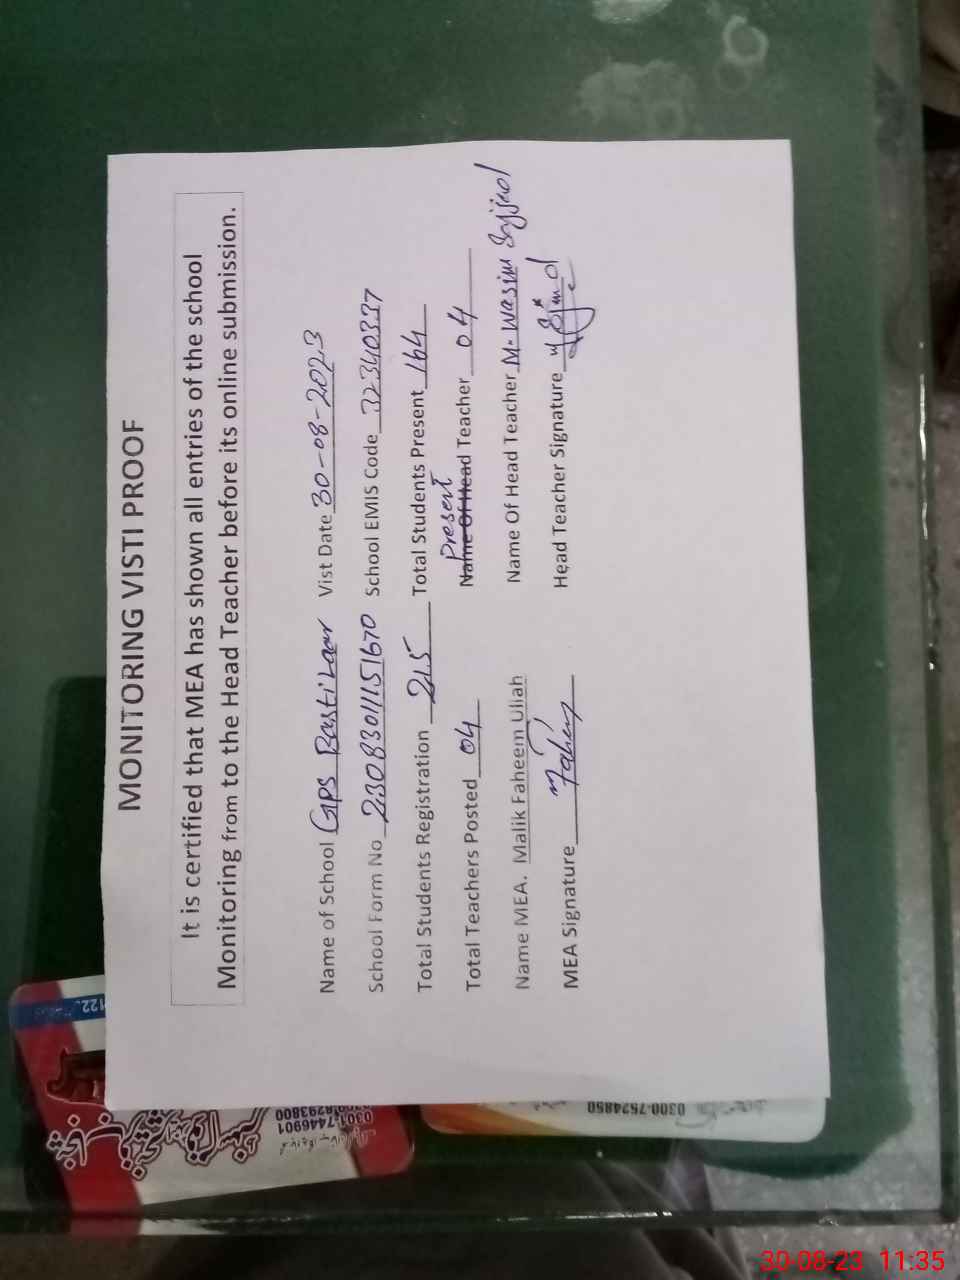 MONITORING VISTI PROOF
It is certified that MEA has shown all entries of the school
Monitoring from to the Head Teacher before its online submission.
Name of School GPS Basti Laar Vist Date 30-08-2023
School Form No 23083011151670 School EMIS Code 32340337
Total Students Registration 215 Total Students Present 164
Total Teachers Posted 04 Name Of Head Present Teacher 04
Name MEA. Malik Faheem Ullah Name Of Head Teacher M. Wasim Sajjad
MEA Signature Fahim Head Teacher Signature
122
0301-7446901
0300-7524850
30-08-23 11:35